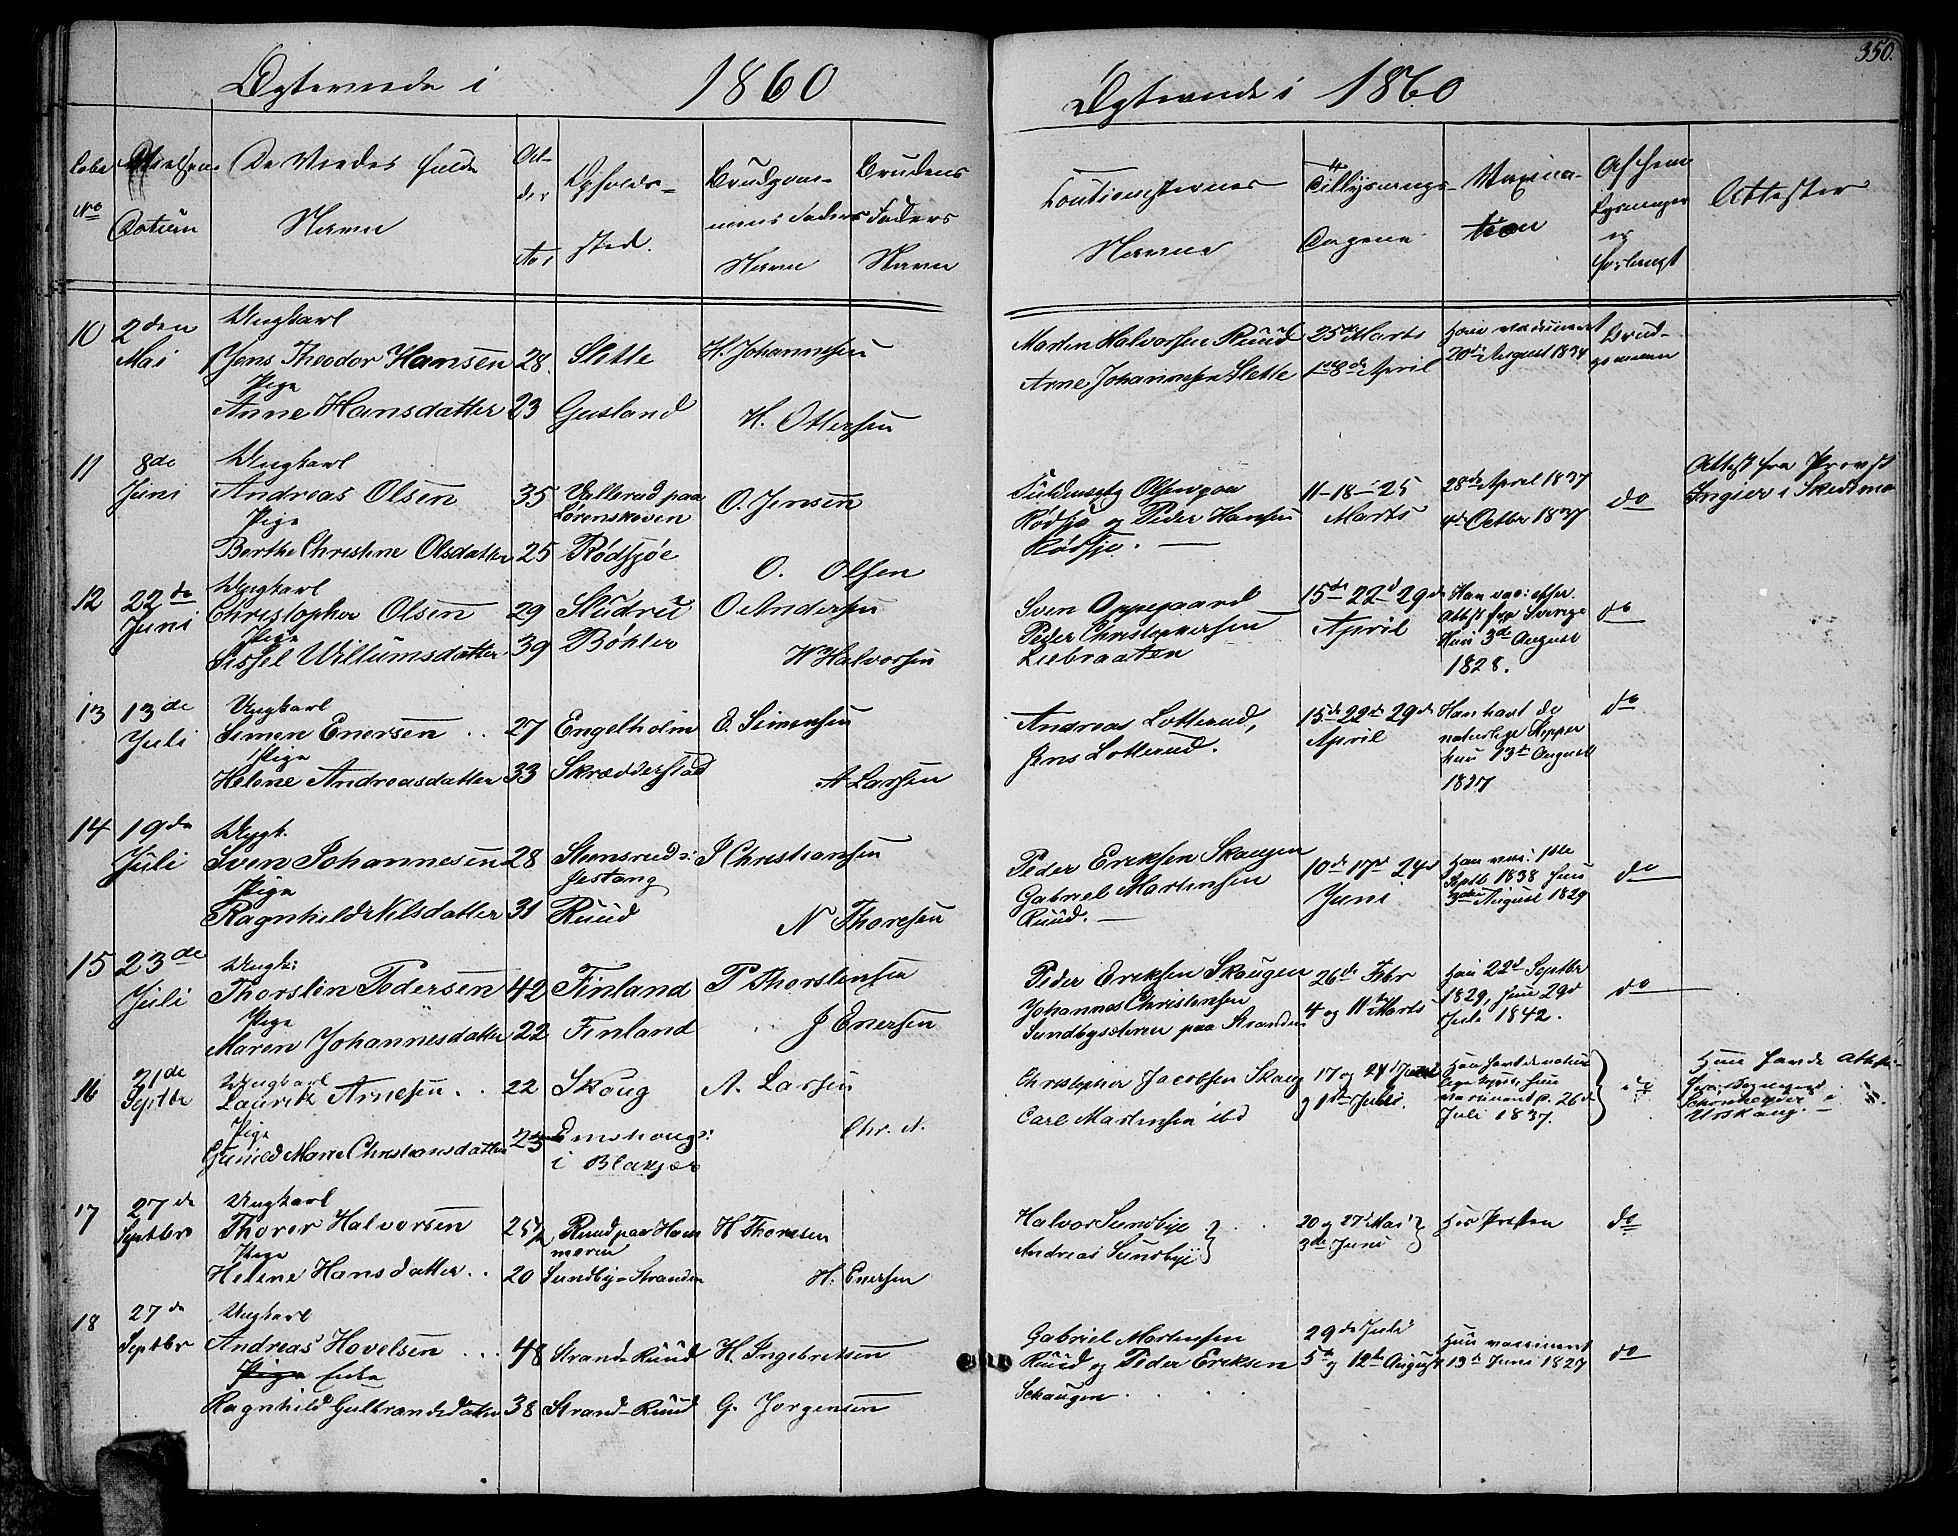 350.
Ægteviede i 1860
Ægteviede i 1860
Løbe No
Datum
De Viedes fulde Navn
Alder Aar
Opholdssted.
Brudgommens Faders Navn
Brudens Faders Navn
Cautionisternes Navne
Tillysnings-Dagene
Vaxination
Af hvem Lysninger er forlangt
Attester
10 2den Mai
Ungkarl
Jens Theodor Hansen 28. Slette H. Johannesen
Pige
Anne Hansdatter 23 Gusland H. Ottersen
Martin Halvorsen Ruud
Arne Johannesen Slette
25de Marts
1ste 8de April
20de August 1834
Brudgommen
11 8de Juni
Ungkarl
Andreas Olsen 35 Vallerud paa Lørenskoven O. Jensen
Pige
Berthe Christine Olsdatter 25 Rødsjøe O. Olsen
Olsen paa
Rødsjø og Peder Hansen
Rødsjø.
11-18-25
Marts
28de April 1837
4de Octbr 1837
do
Attest fra Provst
Ingier i Skedsmo
12 22de Juni
Ungkarl
Christopher Olsen 29 Studru O Andersen
Pige
Sissel Willumsdatter 39 Bøhler W Halvorsen
Sven Oppegaard
Peder Christophersen
Liebraaten
15de 22de 29de
April
Han vac: efter
Attest fra Sverige
Hun 3de August
1828.
do
13 13de Juli
Ungkarl
Simen Enersen .. 27 Engelholm E. Simensen
Pige
Helene Andreasdatter 33 Skrædderstad A Larsen
Andreas Lotterud,
Jens Lotterud.
15de 22de 29de
April
Han havt de
naturlige Kopper
hun 13de August
1827
do
14 19de Juli
Ungk.
Sven Johannesen 28 Stensrud: J Christiansen
Pige
Ragnhild Nilsdatter 31 Ruud N Thoresen
Peder Eriksen Skaugen
Gabriel Martinsen
Ruud.
10de 17de 24de
Juni
Han vac: 1ste
Septb 1838 hun
August 1829
do
15 23de Juli
Ungk:
Thorsten Pedersen 42 Finland P Thorstensen
Pige
Maren Johannesdatter 22 Finland J Enersen
Peder Eriksen Skougen
Johannes Christensen
Sundby paa Stranden
26de Febr
4 og 11te Marts
Han 22de Septbr
1829, hun 29de
Juli 1842.
do
16 21de Septbr
Ungkarl
Lauritz Arnesen .. 22 Skoug A. Larsen
Pige
Gunild Marie Christiansdatter 23
i Blakjer
Chr. A.
Christopher Jacobsen Skoug
Carl Martinsen ibd
17 og 24de Juni
og 1ste Juli.
Han havt de naturlige
Kopper, hun
vaccineret d. 26de
Juli 1837.
do
Hun havde Attest
Urskoug.
17 27de Septbr
Ungkarl
Thorer Halvorsen 25½ Ruud paa H Thoresen
Pige
Helene Hansdatter .. 20 Sundby-Stranden H. Enersen
Halvor Sundbye
Andreas Sundbye
20 og 27de Mai
3de Juni
Hos Præsten
do
18 27de Septbr
Ungkarl
Andreas Hovelsen ... 48 Strand-Ruud H. Ingebretsen
Pige Enke
Ragnhild Gulbrandsdatter 38 Strand-Ruud G. Jørgensen
Gabriel Martinsen
Ruud og Peder Eriksen
Schaugen
29de Juli
5te og 12te August
Hun vaccineret
13de Juni 1827
do